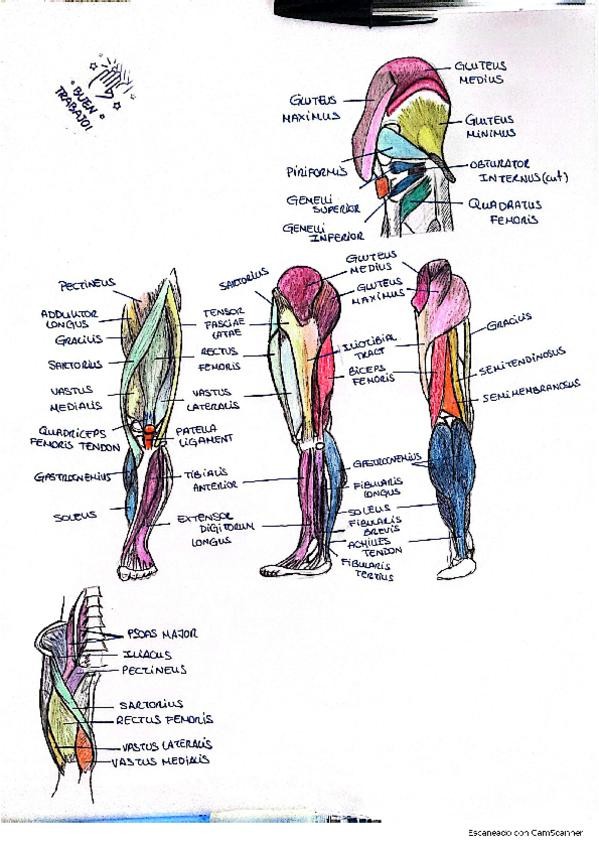 ¡BUEN
TRABAJO!
GLUTEUS
MEDIUS
GLUTEUS
MAXIMUS
GLUTEUS
MINIMUS
PIRIFORMIS
OBTURATOR
INTERNUS (cut)
GEMELLI
SUPERIOR
QUADRATUS
FEMORIS
GEMELLI
INFERIOR
PECTINEUS
ADDUCTOR
LONGUS
GRACILIS
SARTORIUS
VASTUS
MEDIALIS
QUADRICEPS
FEMORIS TENDON
GASTROCNEMIUS
SOLEUS
SARTORIUS
TENSOR
FASCIAE
LATAE
RECTUS
FEMORIS
VASTUS
LATERALIS
PATELLA
LIGAMENT
TIBIALIS
ANTERIOR
EXTENSOR
DIGITORUM
LONGUS
GLUTEUS
MEDIUS
GLUTEUS
MAXIMUS
ILIOTIBIAL
TRACT
BICEPS
FEMORIS
GASTROCNEMIUS
FIBULARIS
LONGUS
SOLEUS
FIBULARIS
BREVIS
ACHILLES
TENDON
FIBULARIS
TERTIUS
GRACILIS
SEMITENDINOSUS
SEMIMEMBRANOSUS
PSOAS MAJOR
ILIACUS
PECTINEUS
SARTORIUS
RECTUS FEMORIS
VASTUS LATERALIS
VASTUS MEDIALIS
Escaneado con CamScanner